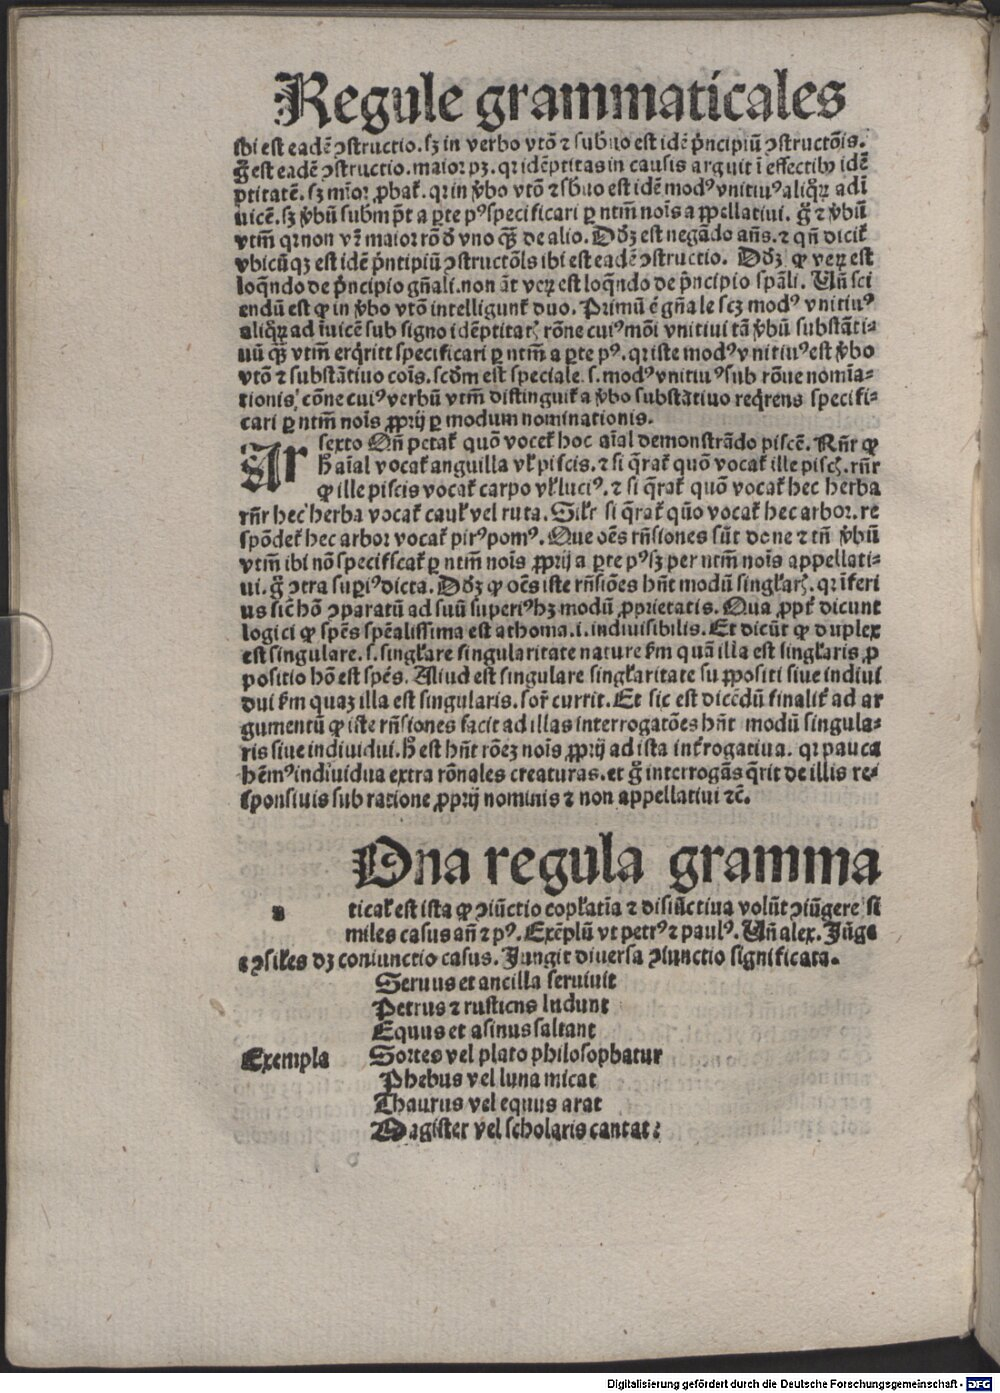 Regule grammaticales
ibi est eadē ↄstructio. sꝫ in verbo vtō ⁊ subῡo est idē pͥncipiū ↄstructōis.
g̃ est eadē ↄstructio. maior pꝫ. qꝛ idēptitas in causis arguit ī effectibꝰ idē
ptitatē. sꝫ mīor ꝓbat᷑. qꝛ in v̓bo vtō ⁊ sb̄uo est idē modꝰ vnitiuꝰ aliqͣꝝ adī
uicē. sꝫ v̓bū subm p̄t a pͣte pꝰ specificari ꝑ ntm̄ noīs appellatiui. g̃ ⁊ v̓bū
vtm̄ qꝛ non vꝛ̄ maior rō ð vno qͣꝫ de alio. Dd̓ꝫ est negādo an̄s. ⁊ qn̄ dicit᷑
vbicūqꝫ est idē pͥntipiū ↄstructōis ibi est eadē ↄstructio. Dd̓ꝫ ꝙ veꝝ est
loqn̄do de pͥncipio gn̄ali. non āt veꝝ est loqn̄do de pͥncipio spāli. Un̄ sci
endū est ꝙ in v̓bo vtō intelligunt᷑ duo. Primū ē gn̄ale scꝫ modꝰ vnitiuꝰ
aliqͣꝝ ad īuicē sub signo idēptitatꝭ rōne cuiꝰ mōi vnitiui tā v̓bū substāti-
uū qͣꝫ vtm̄ erq̇ritt specificari ꝑ ntm̄ a pͣte pꝰ. qꝛ iste modꝰ vnitiuꝰ est v̓bo
vtō ⁊ substātiuo coīs. scd̓m est speciale. s. modꝰ vnitiuꝰ sub rōue nomīa-
tionis cōne cuiꝰ verbū vtm̄ distinguit᷑ a v̓bo substātiuo req̇rens specifi-
cari ꝑ ntm̄ noīs ꝓprij ꝑ modum nominationis.
Ar sexto Qn̄ petat᷑ quō vocet᷑ hoc aīal demonstrādo piscē. Rn̄r ꝙ
h̄ aīal vocat᷑ anguilla vl̓ piscis. ⁊ si q̄rat᷑ quō vocat᷑ ille piscꝭ. rn̄r
ꝙ ille piscis vocat᷑ carpo vl̓ luciꝰ. ⁊ si q̄rat᷑ quō vocat᷑ hec herba
rn̄r hec herba vocat᷑ caul̓ vel ruta. Sil̓r si q̄rat᷑ qūo vocat᷑ hec arbor. re
spōdet᷑ hec arbor vocat᷑ pirꝰ pomꝰ. Que oēs rn̄siones sūt done ⁊ tn̄ v̓bū
vtm̄ ibi nō specificat᷑ ꝑ ntm̄ noīs ꝓprij a pͣte pꝰ sꝫ per ntm̄ noīs appellati-
ui. g̃ ↄtra supͥꝰ dicta. Dd̓ꝫ ꝙ oēs iste rn̄siōes hn̄t modū singl̓arꝭ. qꝛ īferi
us sic̄ hō ↄparatū ad suū superiꝰ hꝫ modū ꝓprietatis. Qua ꝓpt᷑ dicunt
logici ꝙ spēs spēalissima est athoma. i. indiuisibilis. Et dicūt ꝙ duplex
est singulare. s. singl̓are singularitate nature fm̄ quā illa est singl̓aris ꝓ
positio hō est spēs. Aliud est singulare singl̓aritate suppositi siue indiui
dui fm̄ quaꝫ illa est singularis. sor̄ currit. Et sic est dicēdū finalit᷑ ad ar
gumentū ꝙ iste rn̄siones facit ad illas interrogatōes hn̄t modū singula-
ris siue indiuidui. h̄ est hn̄t rōeꝫ noīs ꝓprij ad ista int᷑rogatiua. qꝛ pauca
hēmꝰ indiuidua extra rōnales creaturas. et g̃ interrogās q̄rit de illis re-
sponsiuis sub ratione ꝓprij nominis ⁊ non appellatiui ⁊c̄.
Una regula gramma
ticał est ista ꝙ ↄiūctio copl̓atīa ⁊ disiūctiua volūt ↄiūgere si
miles casus an̄ ⁊ pꝰ. Exēplū vt petrꝰ ⁊ paulꝰ. Un̄ alex. Jūge
e ↄsil̓es dꝫ coniunctio casus. Jungit diuersa ↄiunctio significata.
Seruus et ancilla seruiuit
Petrus ⁊ rusticns ludunt
Equus et asinus saltant
Exempla Sortes vel plato philosophatur
Phebus vel luna micat
Thaurus vel equus arat
Magister vel scholaris cantat:
Digitalisierung gefördert durch die Deutsche Forschungsgemeinschaft - DFG